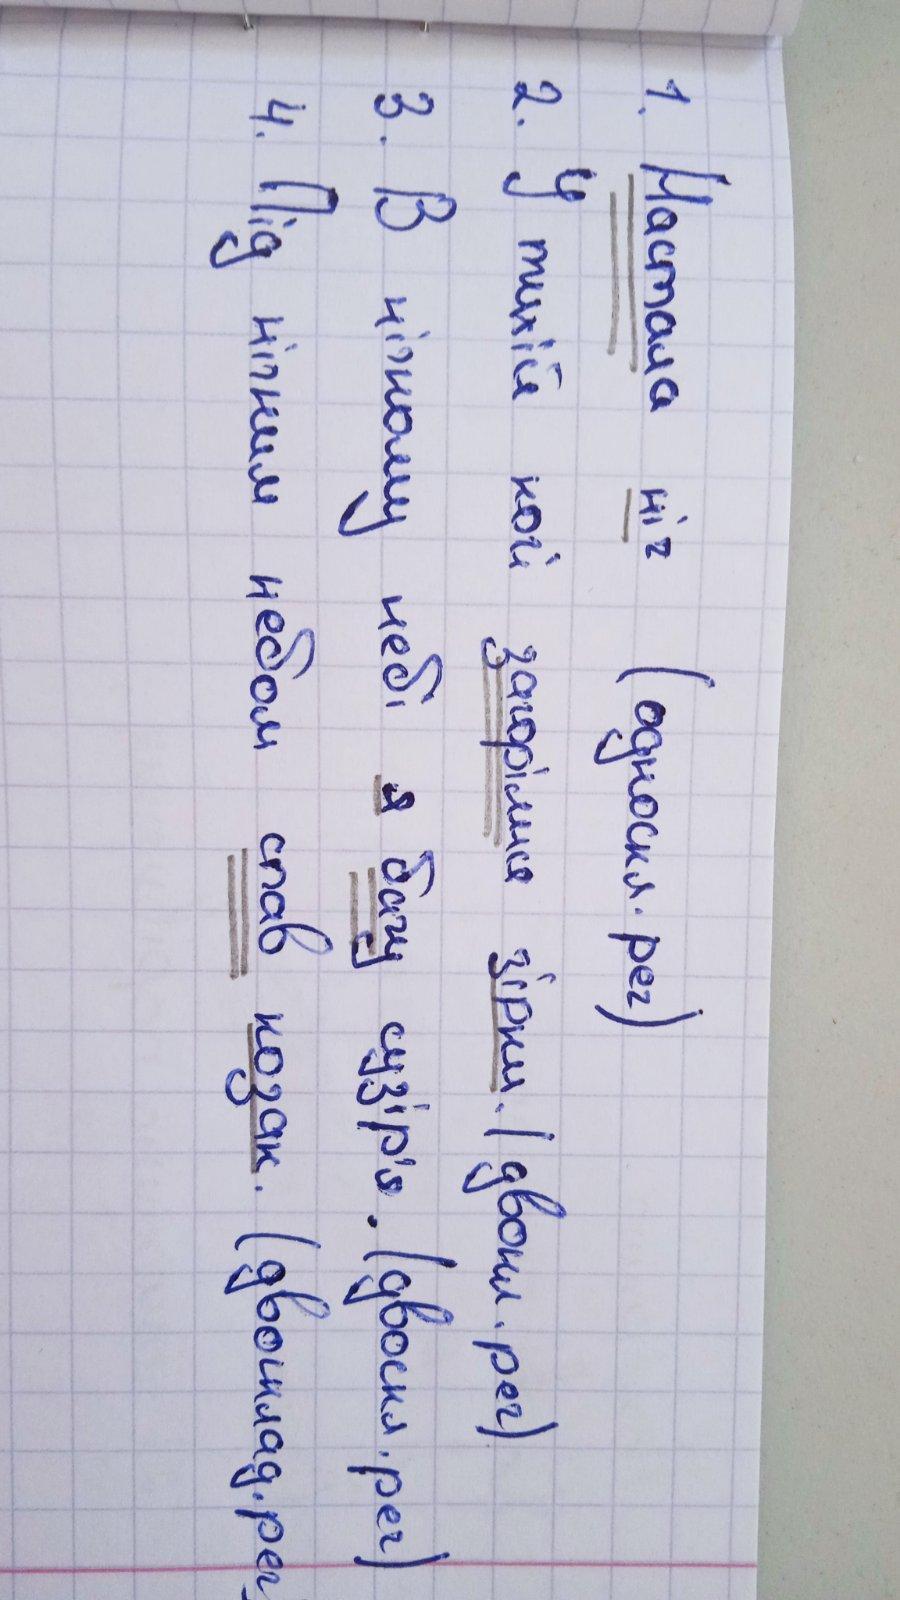 1. Настала ніч (односкл. реч)
2. У тихій ночі загорілися зірки. (двоскл. реч)
3. В нічному небі я бачу сузір'я. (двоскл. реч)
4. Під нічним небом спав козак. (двосклад. реч)